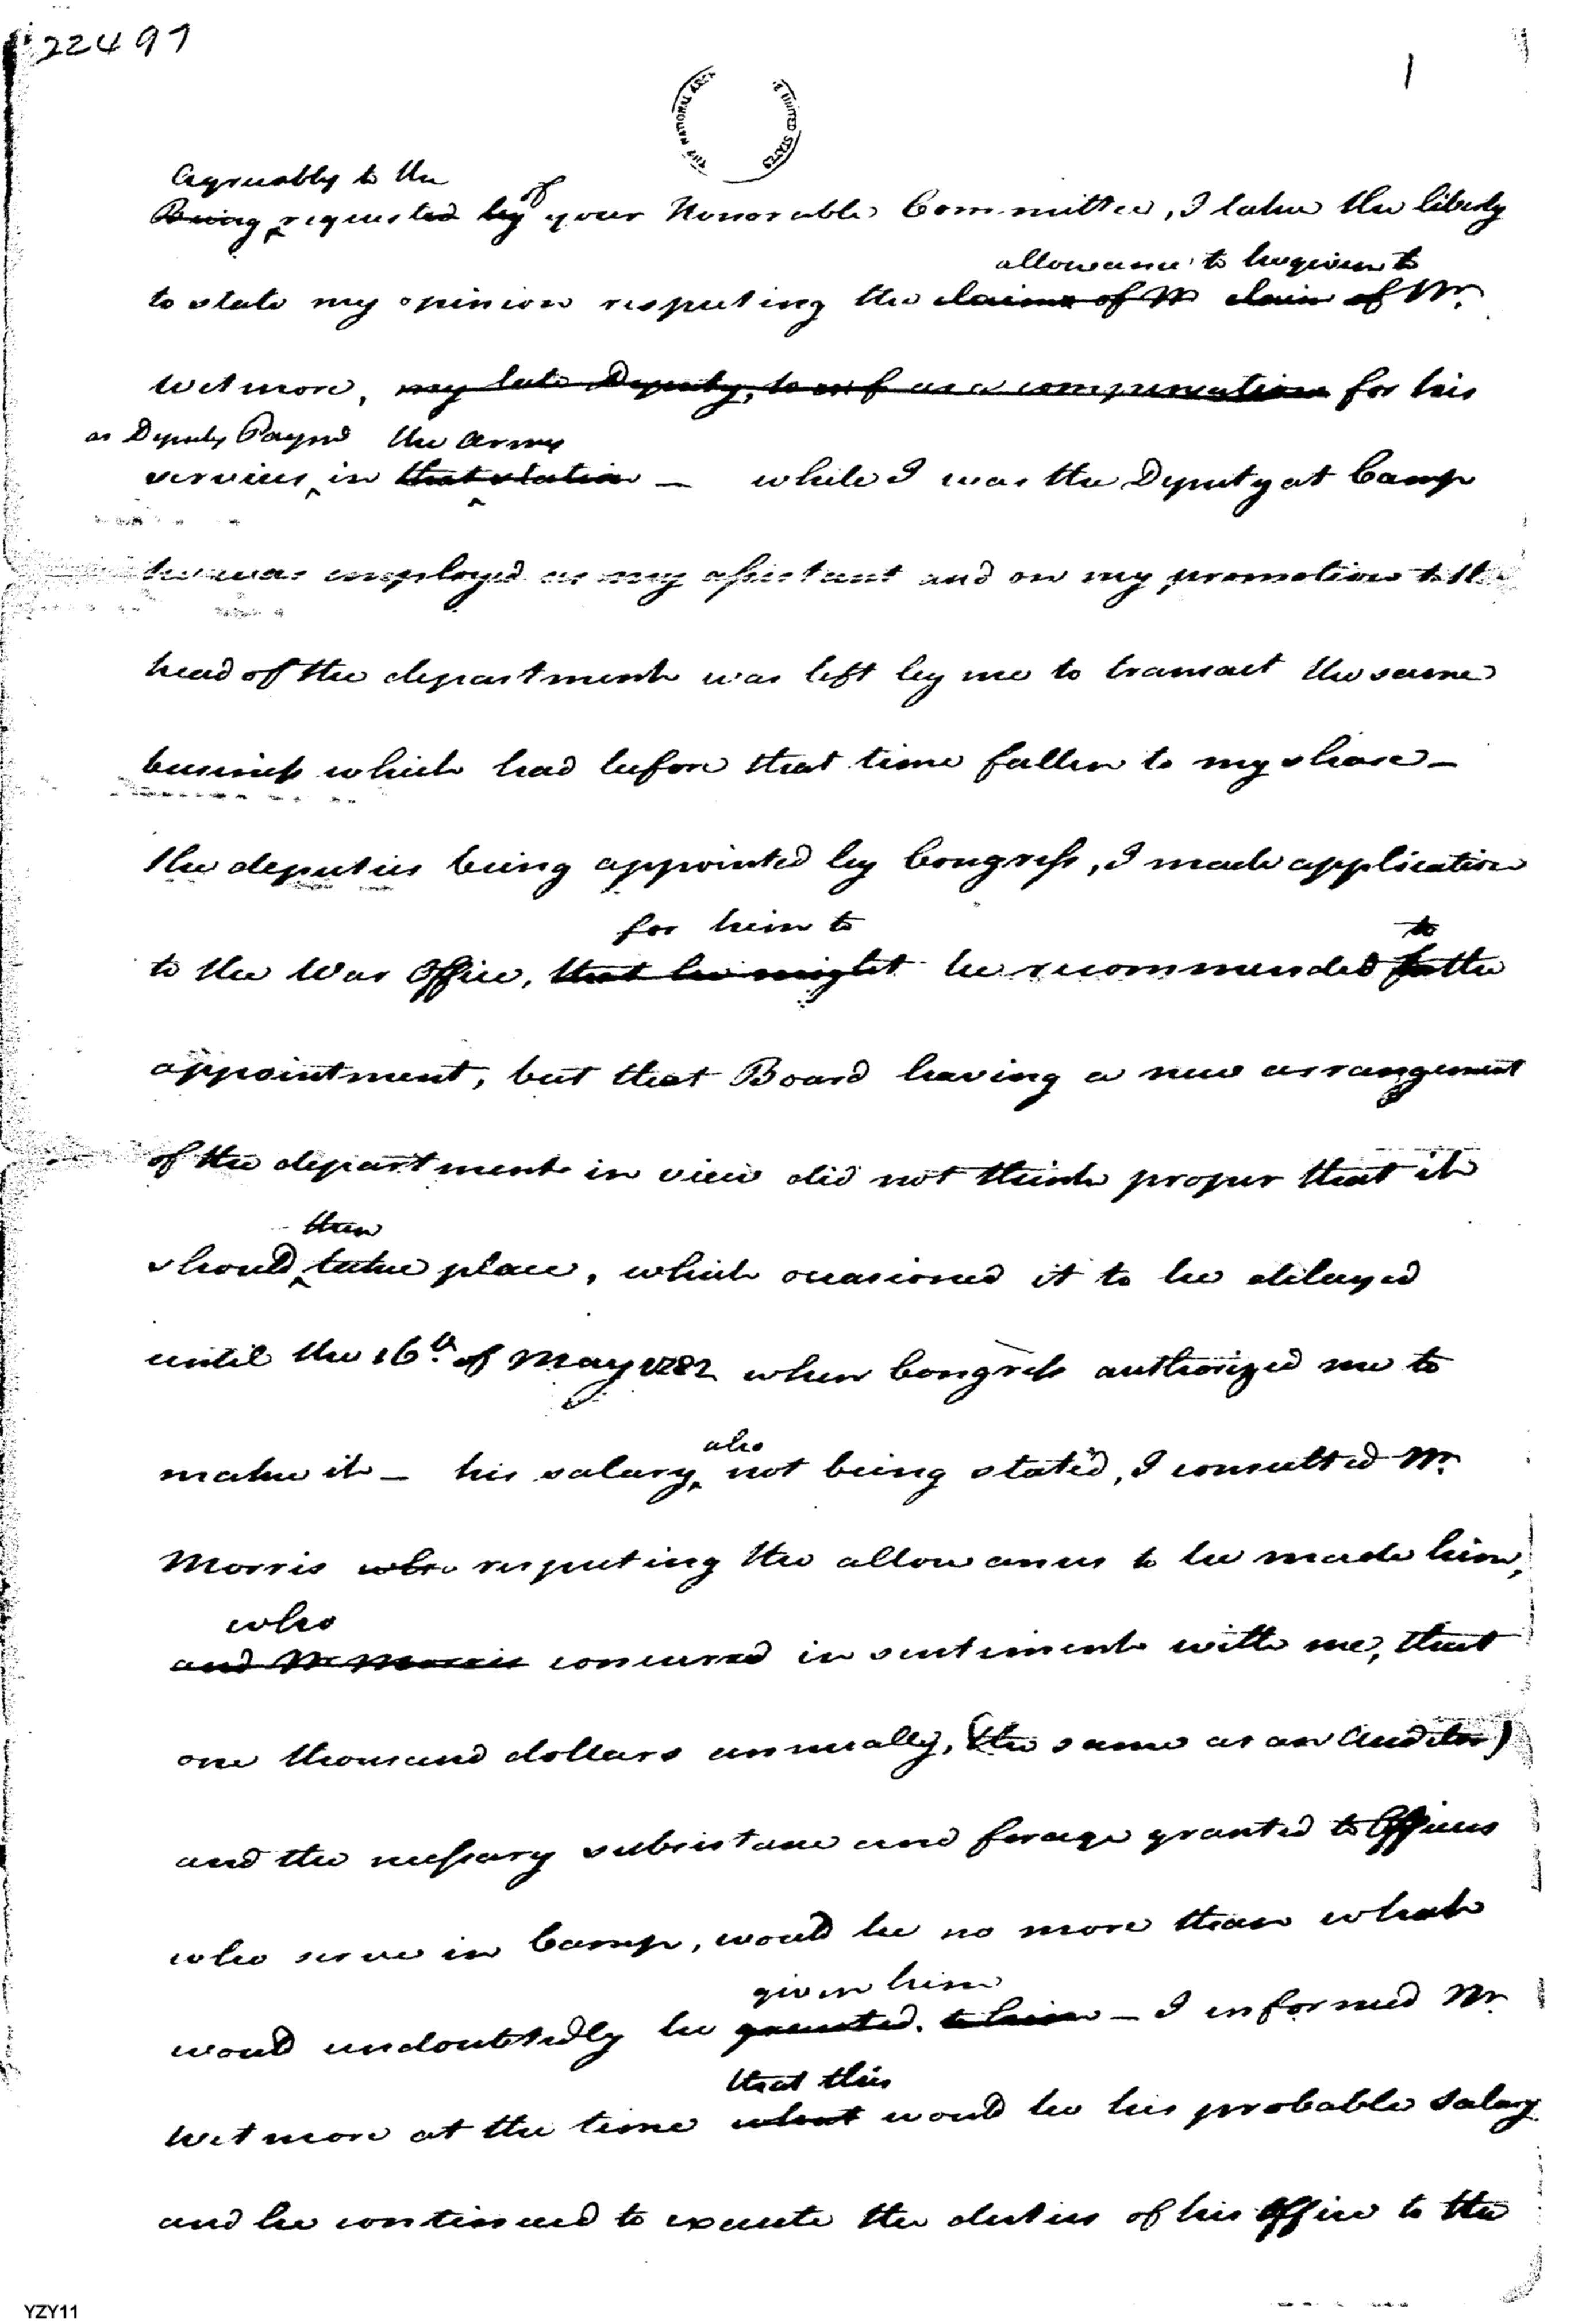 22497
1
THE NATIONAL ARCH
E UNITED STATES
Agreeably to the of
Being requested by your Honorable Committee, I take the liberty
allowance to be given to
to state my opinion respecting the claims of Mr claim of Mr.
Wetmore, my late Deputy, as a compensation for his
as Deputy Paymr the Army
services in that station — while I was the Deputy at Camp
he was employed as my assistant and on my promotion to the
head of the department was left by me to transact the same
business which had before that time fallen to my share —
the deputies being appointed by Congress, I made application
for him to to
to the War Office, that he might be recommended for the
appointment, but that Board having a new arrangement
of the department in view did not think proper that it
then
should take place, which occasioned it to be delayed
until the 16th of May 1782 when Congress authorized me to
also
make it — his salary not being stated, I consulted Mr.
Morris who respecting the allowances to be made him,
who
and Mr Morris concurred in sentiment with me, that
one thousand dollars annually, (the same as an Auditor)
and the necessary subsistance and forage granted to Officers
who serve in Camp, would be no more than what
given him
would undoubtedly be granted. to him — I informed Mr.
that this
Wetmore at the time what would be his probable salary
and he continued to execute the duties of his Office to the
YZY11